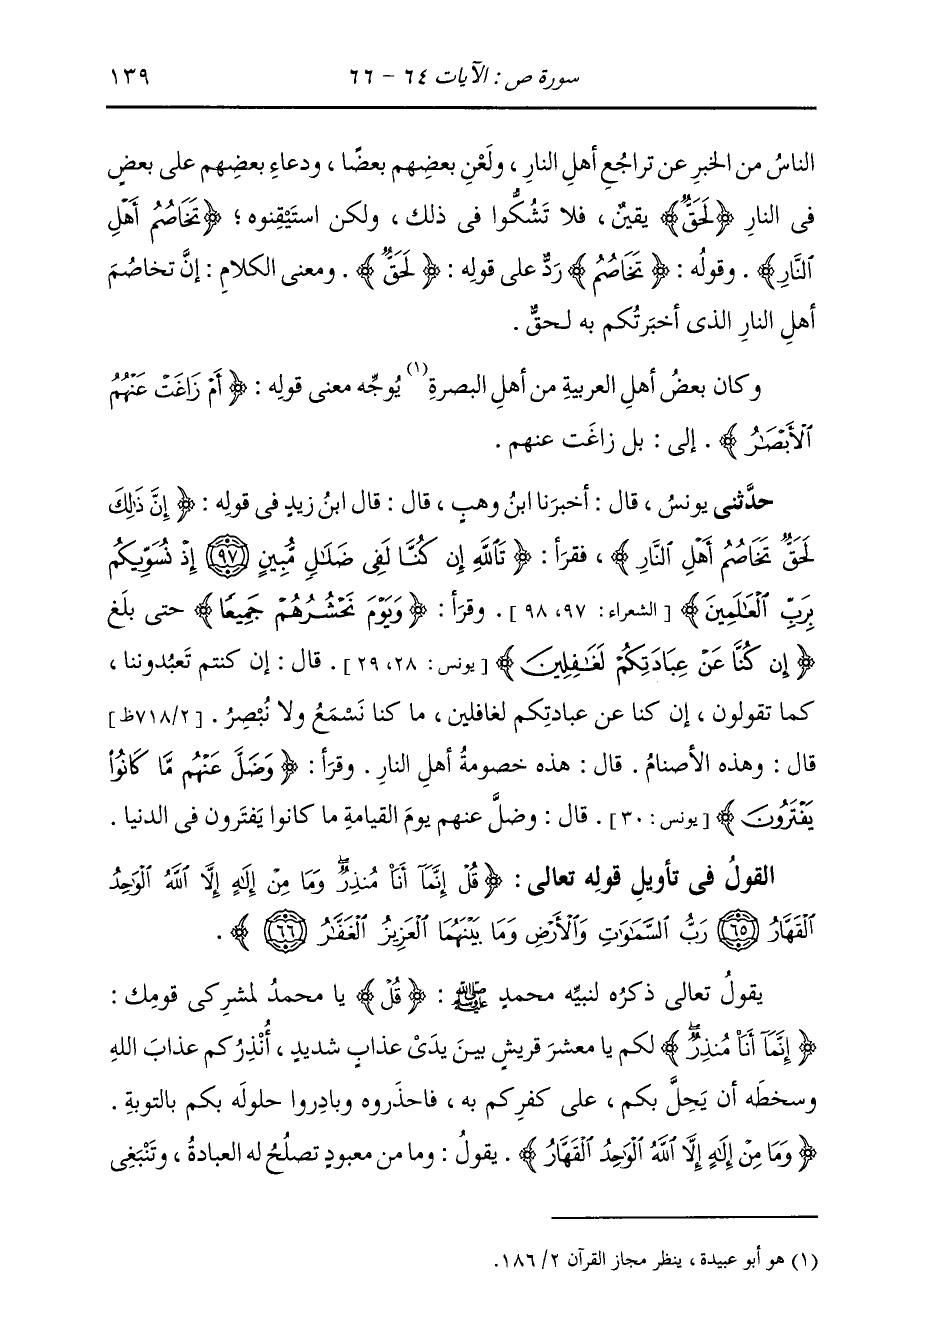 سورة ص : الآيات ٦٤ - ٦٦ ١٣٩
الناسُ من الخبرِ عن تراجُعِ أهلِ النارِ ، ولَعْنِ بعضِهم بعضًا ، ودعاءِ بعضِهم على بعضٍ
فى النارِ ﴿لَحَقٌّ﴾ يقينٌ ، فلا تَشُكُّوا فى ذلك ، ولكن استَيْقِنوه ؛ ﴿تَخَاصُمُ أَهْلِ
ٱلنَّارِ﴾ . وقولُه : ﴿ تَخَاصُمُ ﴾ رَدٌّ على قولِه : ﴿ لَحَقٌّ ﴾ . ومعنى الكلامِ : إنَّ تخاصُمَ
أهلِ النارِ الذى أخبَرتُكم به لحقٌّ .
وكان بعضُ أهلِ العربيةِ من أهلِ البصرةِ(١) يُوجِّه معنى قولِه : ﴿ أَمْ زَاغَتْ عَنْهُمُ
ٱلْأَبْصَٰرُ ﴾ . إلى : بل زاغَت عنهم .
حدَّثنى يونسُ ، قال : أخبرَنا ابنُ وهبٍ ، قال : قال ابنُ زيدٍ فى قولِه : ﴿ إِنَّ ذَٰلِكَ
لَحَقٌّ تَخَاصُمُ أَهْلِ ٱلنَّارِ ﴾ ، فقرَأ : ﴿ تَٱللَّهِ إِن كُنَّا لَفِى ضَلَٰلٍ مُّبِينٍ ﴿٩٧﴾ إِذْ نُسَوِّيكُم
بِرَبِّ ٱلْعَٰلَمِينَ ﴾ [ الشعراء : ٩٧، ٩٨ ] . وقرَأ : ﴿ وَيَوْمَ نَحْشُرُهُمْ جَمِيعًا ﴾ حتى بلَغ
﴿ إِن كُنَّا عَنْ عِبَادَتِكُمْ لَغَٰفِلِينَ ﴾ [ يونس : ٢٨، ٢٩ ] . قال : إن كنتم تَعبُدوننا ،
كما تقولون ، إن كنا عن عبادتِكم لغافلين ، ما كنا نَسْمَعُ ولا نُبْصِرُ . [ ٧١٨/٢ظ ]
قال : وهذه الأصنامُ . قال : هذه خصومةُ أهلِ النارِ . وقرَأ : ﴿ وَضَلَّ عَنْهُم مَّا كَانُوا۟
يَفْتَرُونَ ﴾ [ يونس : ٣٠ ] . قال : وضلَّ عنهم يومَ القيامةِ ما كانوا يَفتَرون فى الدنيا .
القولُ فى تأويلِ قولِه تعالى : ﴿ قُلْ إِنَّمَآ أَنَا۠ مُنذِرٌۖ وَمَا مِنْ إِلَٰهٍ إِلَّا ٱللَّهُ ٱلْوَٰحِدُ
ٱلْقَهَّارُ ﴿٦٥﴾ رَبُّ ٱلسَّمَٰوَٰتِ وَٱلْأَرْضِ وَمَا بَيْنَهُمَا ٱلْعَزِيزُ ٱلْغَفَّٰرُ ﴿٦٦﴾ ﴾ .
يقولُ تعالى ذكرُه لنبيِّه محمدٍ ﷺ : ﴿ قُلْ ﴾ يا محمدُ لمشرِكى قومِك :
﴿ إِنَّمَآ أَنَا۠ مُنذِرٌۖ ﴾ لكم يا معشرَ قريشٍ بينَ يدَىْ عذابٍ شديدٍ ، أُنْذِرُكم عذابَ اللهِ
وسخطَه أن يَحِلَّ بكم ، على كفرِكم به ، فاحذَروه وبادِروا حلولَه بكم بالتوبةِ .
﴿ وَمَا مِنْ إِلَٰهٍ إِلَّا ٱللَّهُ ٱلْوَٰحِدُ ٱلْقَهَّارُ ﴾ . يقولُ : وما من معبودٍ تصلُحُ له العبادةُ ، وتَنْبَغِى
(١) هو أبو عبيدة ، ينظر مجاز القرآن ٢/ ١٨٦.